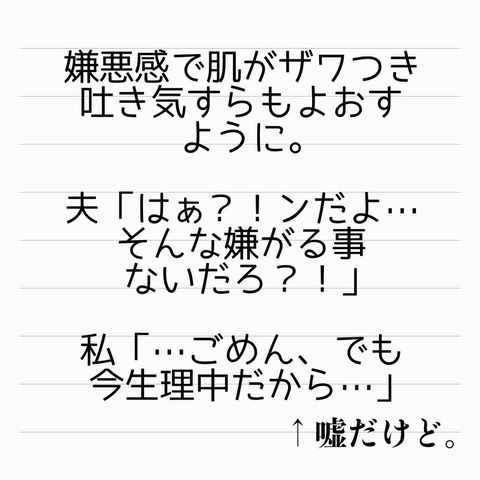 嫌悪感で肌がザワつき
吐き気すらもよおす
ように。
夫「はぁ？！ンだよ…
そんな嫌がる事
ないだろ？！」
私「…ごめん、でも
今生理中だから…」
↑嘘だけど。